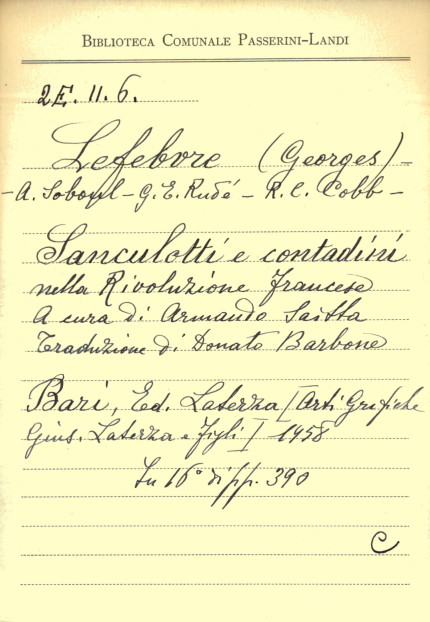 BIBLIOTECA COMUNALE PASSERINI-LANDI
2E. 11. 6.
Lefebvre (Georges) -
- A. Soboul - G. E. Rudé - R. C. Cobb -
Sanculotti e contadini
nella Rivoluzione Francese
A cura di Armando Saitta
Traduzione di Donato Barbone
Bari, Ed. Laterza / Arti Grafiche
Gius. Laterza e Figli / 1958
In 16° di pp. 390
C